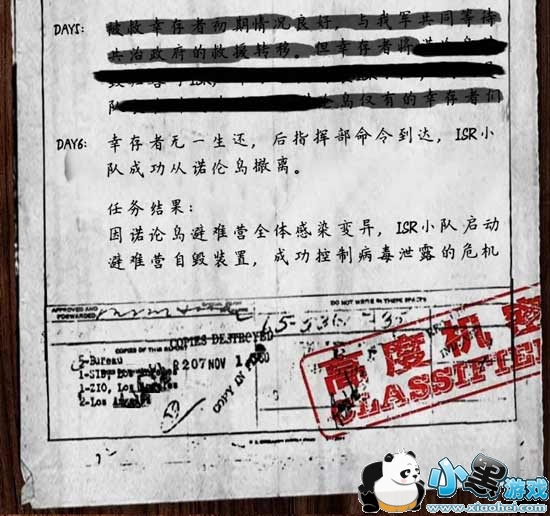 DAY5: 被救幸存者初期情况良好，与我军共同等待
共治政府的救援转移。但幸存者将
ISR小
队 岛仅有的幸存者们
DAY6: 幸存者无一生还，后指挥部命令到达，ISR小
队成功从诺伦岛撤离。
任务结果：
因诺论岛避难营全体感染变异，ISR小队启动
避难营自毁装置，成功控制病毒泄露的危机
APPROVED AND
FORWARDED
DO NOT WRITE IN THESE SPACES
65-536 -35
COPIES DESTROYED
COPIES OF THIS REPORT
5-Bureau
207 NOV 1
1-ZIO, Los Angeles
2-Los Angeles
COPY IN
高度机密
CLASSIFIE
小黑游戏
www.xiaohei.com